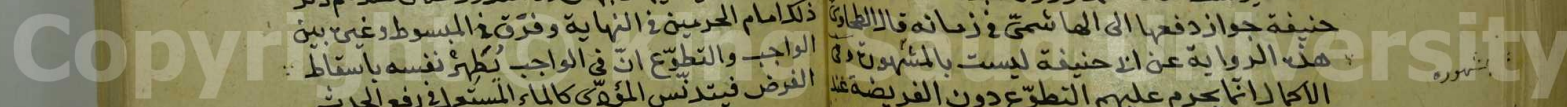 حنيفة جواز دفعها الى الهاشمى فى زمانه قال الطحاوى
هذه الرواية عن ابى حنيفة ليست بالمشهورة وفى
الاكمال انما يحرم عليهم التطوع دون الفريضة
بمشهوره
ذلك امام الحرمين فى النهاية وفرّق فى المبسوط وغيره بين
الواجب والتطوّع انّ فى الواجب يُطَهِّرُ نفسه باسقاط
الفرض فيتدنّس المؤدّى كالماء المستعمل فى رفع الحدث